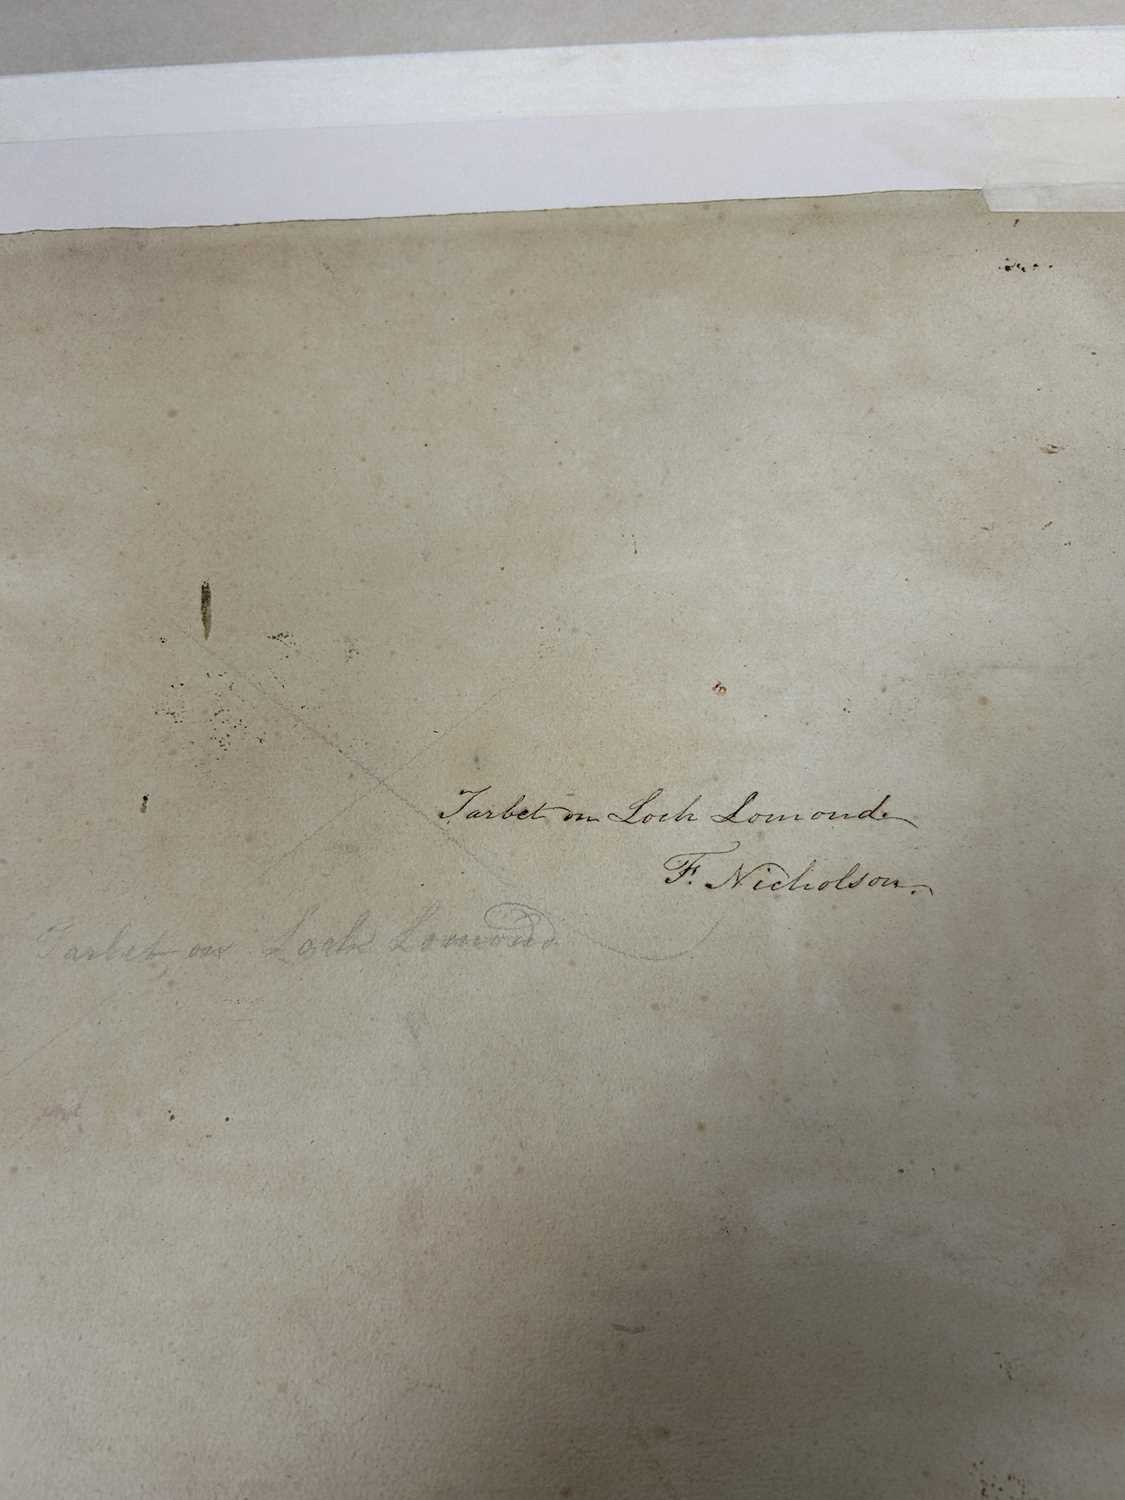 Tarbet on Loch Lomond
F. Nicholson.
Tarbet on Loch Lomond.